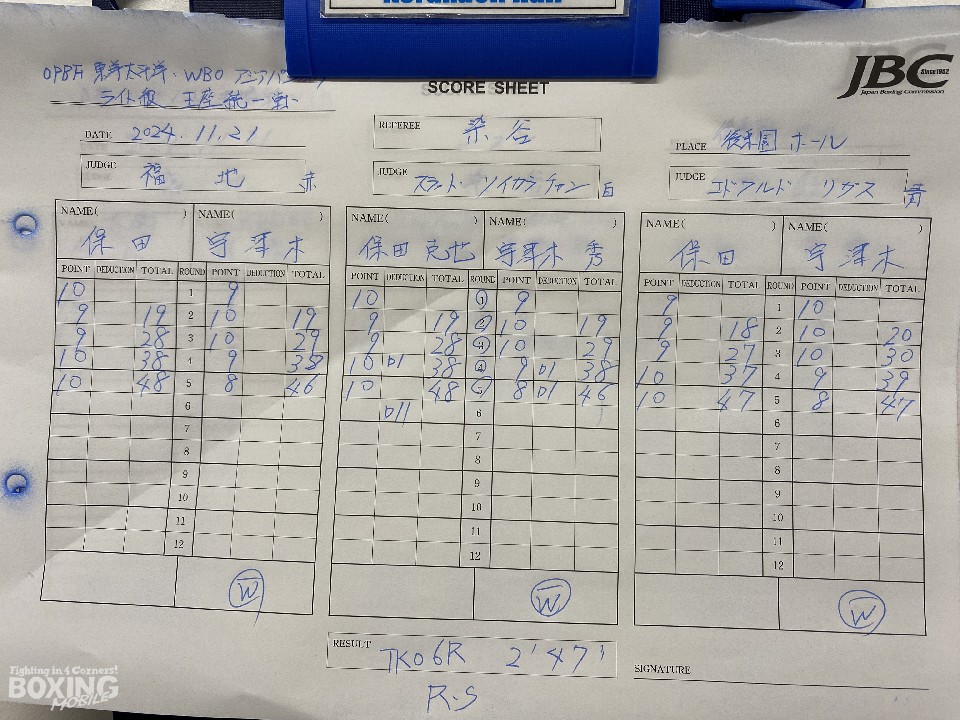 Korakuen Hall
OPBF 東洋太平洋・WBO アジアパシフィック
ライト級 王座統一戦
SCORE SHEET
JBC Since 1952
Japan Boxing Commission
DATE 2024.11.21
REFEREE 染谷
PLACE 後楽園ホール
JUDGE 福地 赤
JUDGE 白
JUDGE エドワルド リガス 青
NAME( ) NAME( ) NAME( ) NAME( ) NAME( ) NAME( )
保田 宇津木 保田克也 宇津木 秀 保田 宇津木
POINT DEDUCTION TOTAL ROUND POINT DEDUCTION TOTAL POINT DEDUCTION TOTAL ROUND POINT DEDUCTION TOTAL POINT DEDUCTION TOTAL ROUND POINT DEDUCTION TOTAL
10 1 9 10 1 9 9 1 10
9 19 2 10 19 9 19 2 10 19 9 18 2 10 20
9 28 3 10 29 9 28 3 10 29 9 27 3 10 30
10 38 4 9 38 10 D1 38 4 9 D1 38 10 37 4 9 39
10 48 5 8 46 10 48 5 8 D1 46 10 47 5 8 47
6 D11 6 6
7 7 7
8 8 8
9 9 9
10 10 10
11 11 11
12 12 12
W W W
RESULT TKO 6R 2'47"
R.S
SIGNATURE
Fighting in 4 Corners!
BOXING
MOBILE